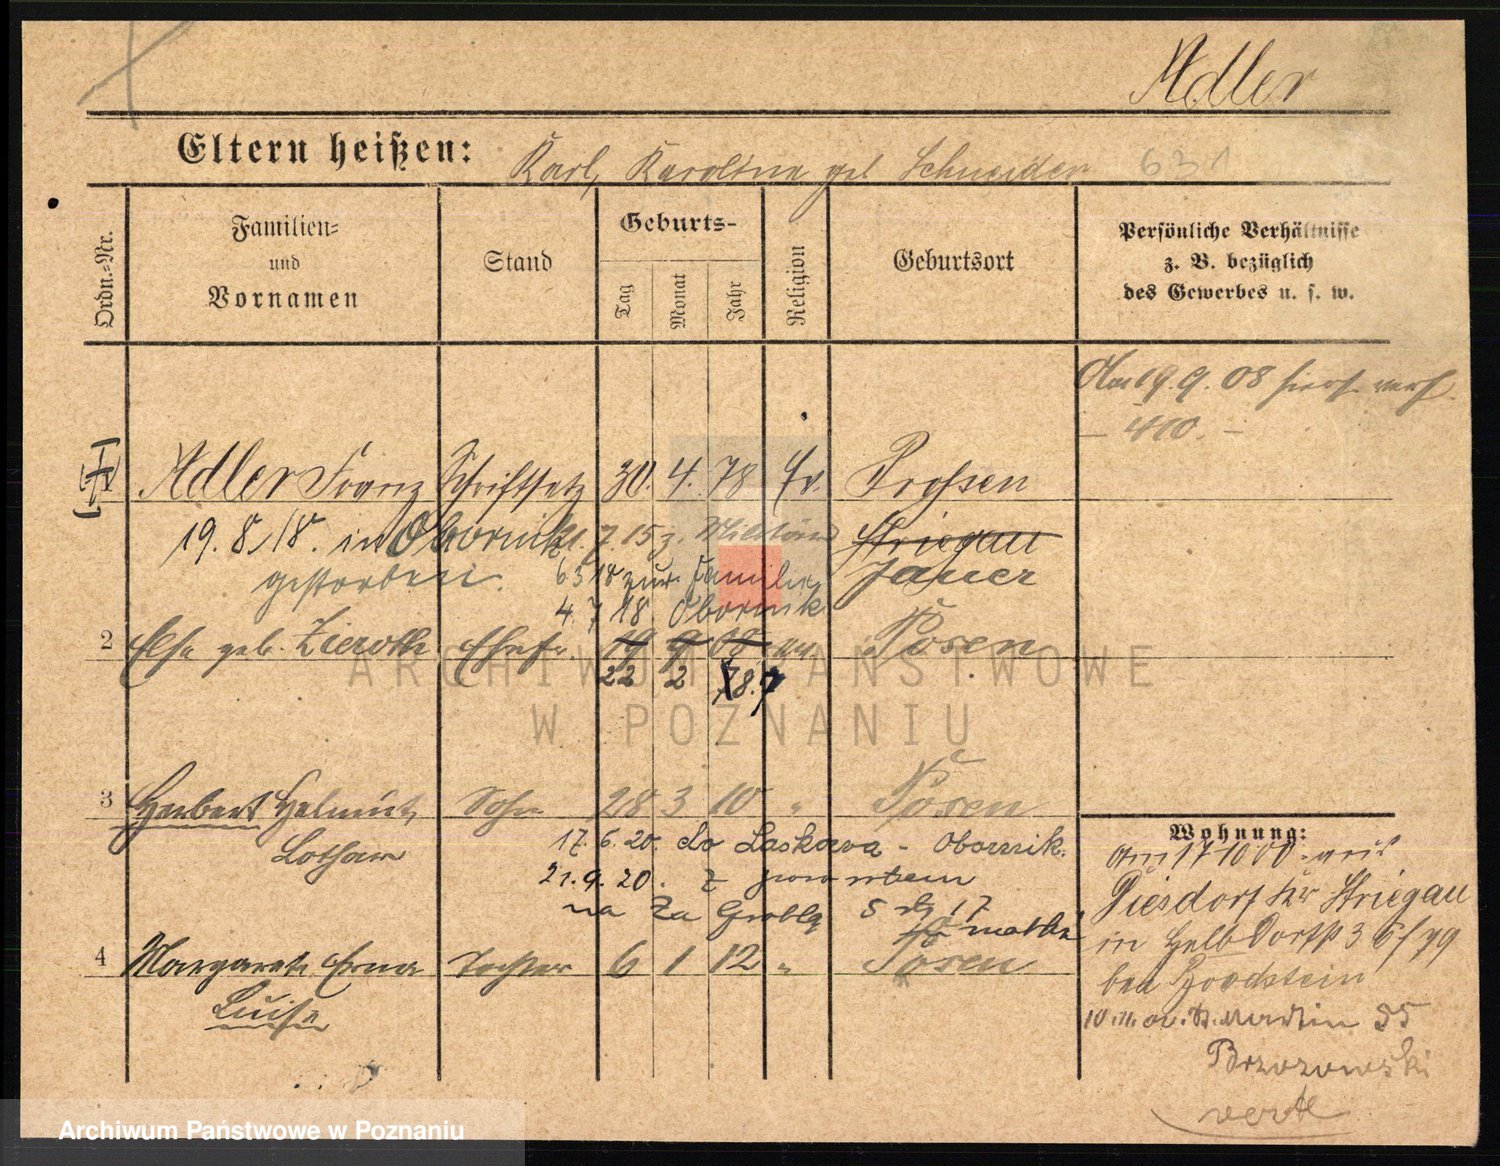 Adler
Eltern heißen: Karl, Karolina geb Schneider 631
Ordn.=Nr.
Familien=
und
Vornamen
Stand
Geburts-
Tag
Monat
Jahr
Religion
Geburtsort
Persönliche Verhältnisse
z. B. bezüglich
des Gewerbes u. s. w.
Am 19. 9. 08 hier
— 400. —
1 Adler Franz Schriftsetz 30. 4. 78 Ev. Proschen
19. 8. 18. in Obornik 21. 7. 15 z. Militär Striegau
gestorben. 6 3 18 zur. Familie Jauer
4. 7 18 Obornik
2 Else geb. Zieroth Ehefr. 19 9 08 Posen
22 2 78.
3 Herbert Helmut Sohn 28 3 10 " Posen
Lothar
17. 6. 20. do Laskowa - Obornik.
21. 9. 20. z powrotem
na Za Groblą 5 17
matki
4 Margarete Erna Tochter 6 1 12 " Posen
Luise
Wohnung:
am 17 10 00 aus
Piesdorf Kr Striegau
in
bei
10. 11. St. Martin 35
Brzozowski
verte
ARCHIWUM PAŃSTWOWE
W POZNANIU
Archiwum Państwowe w Poznaniu